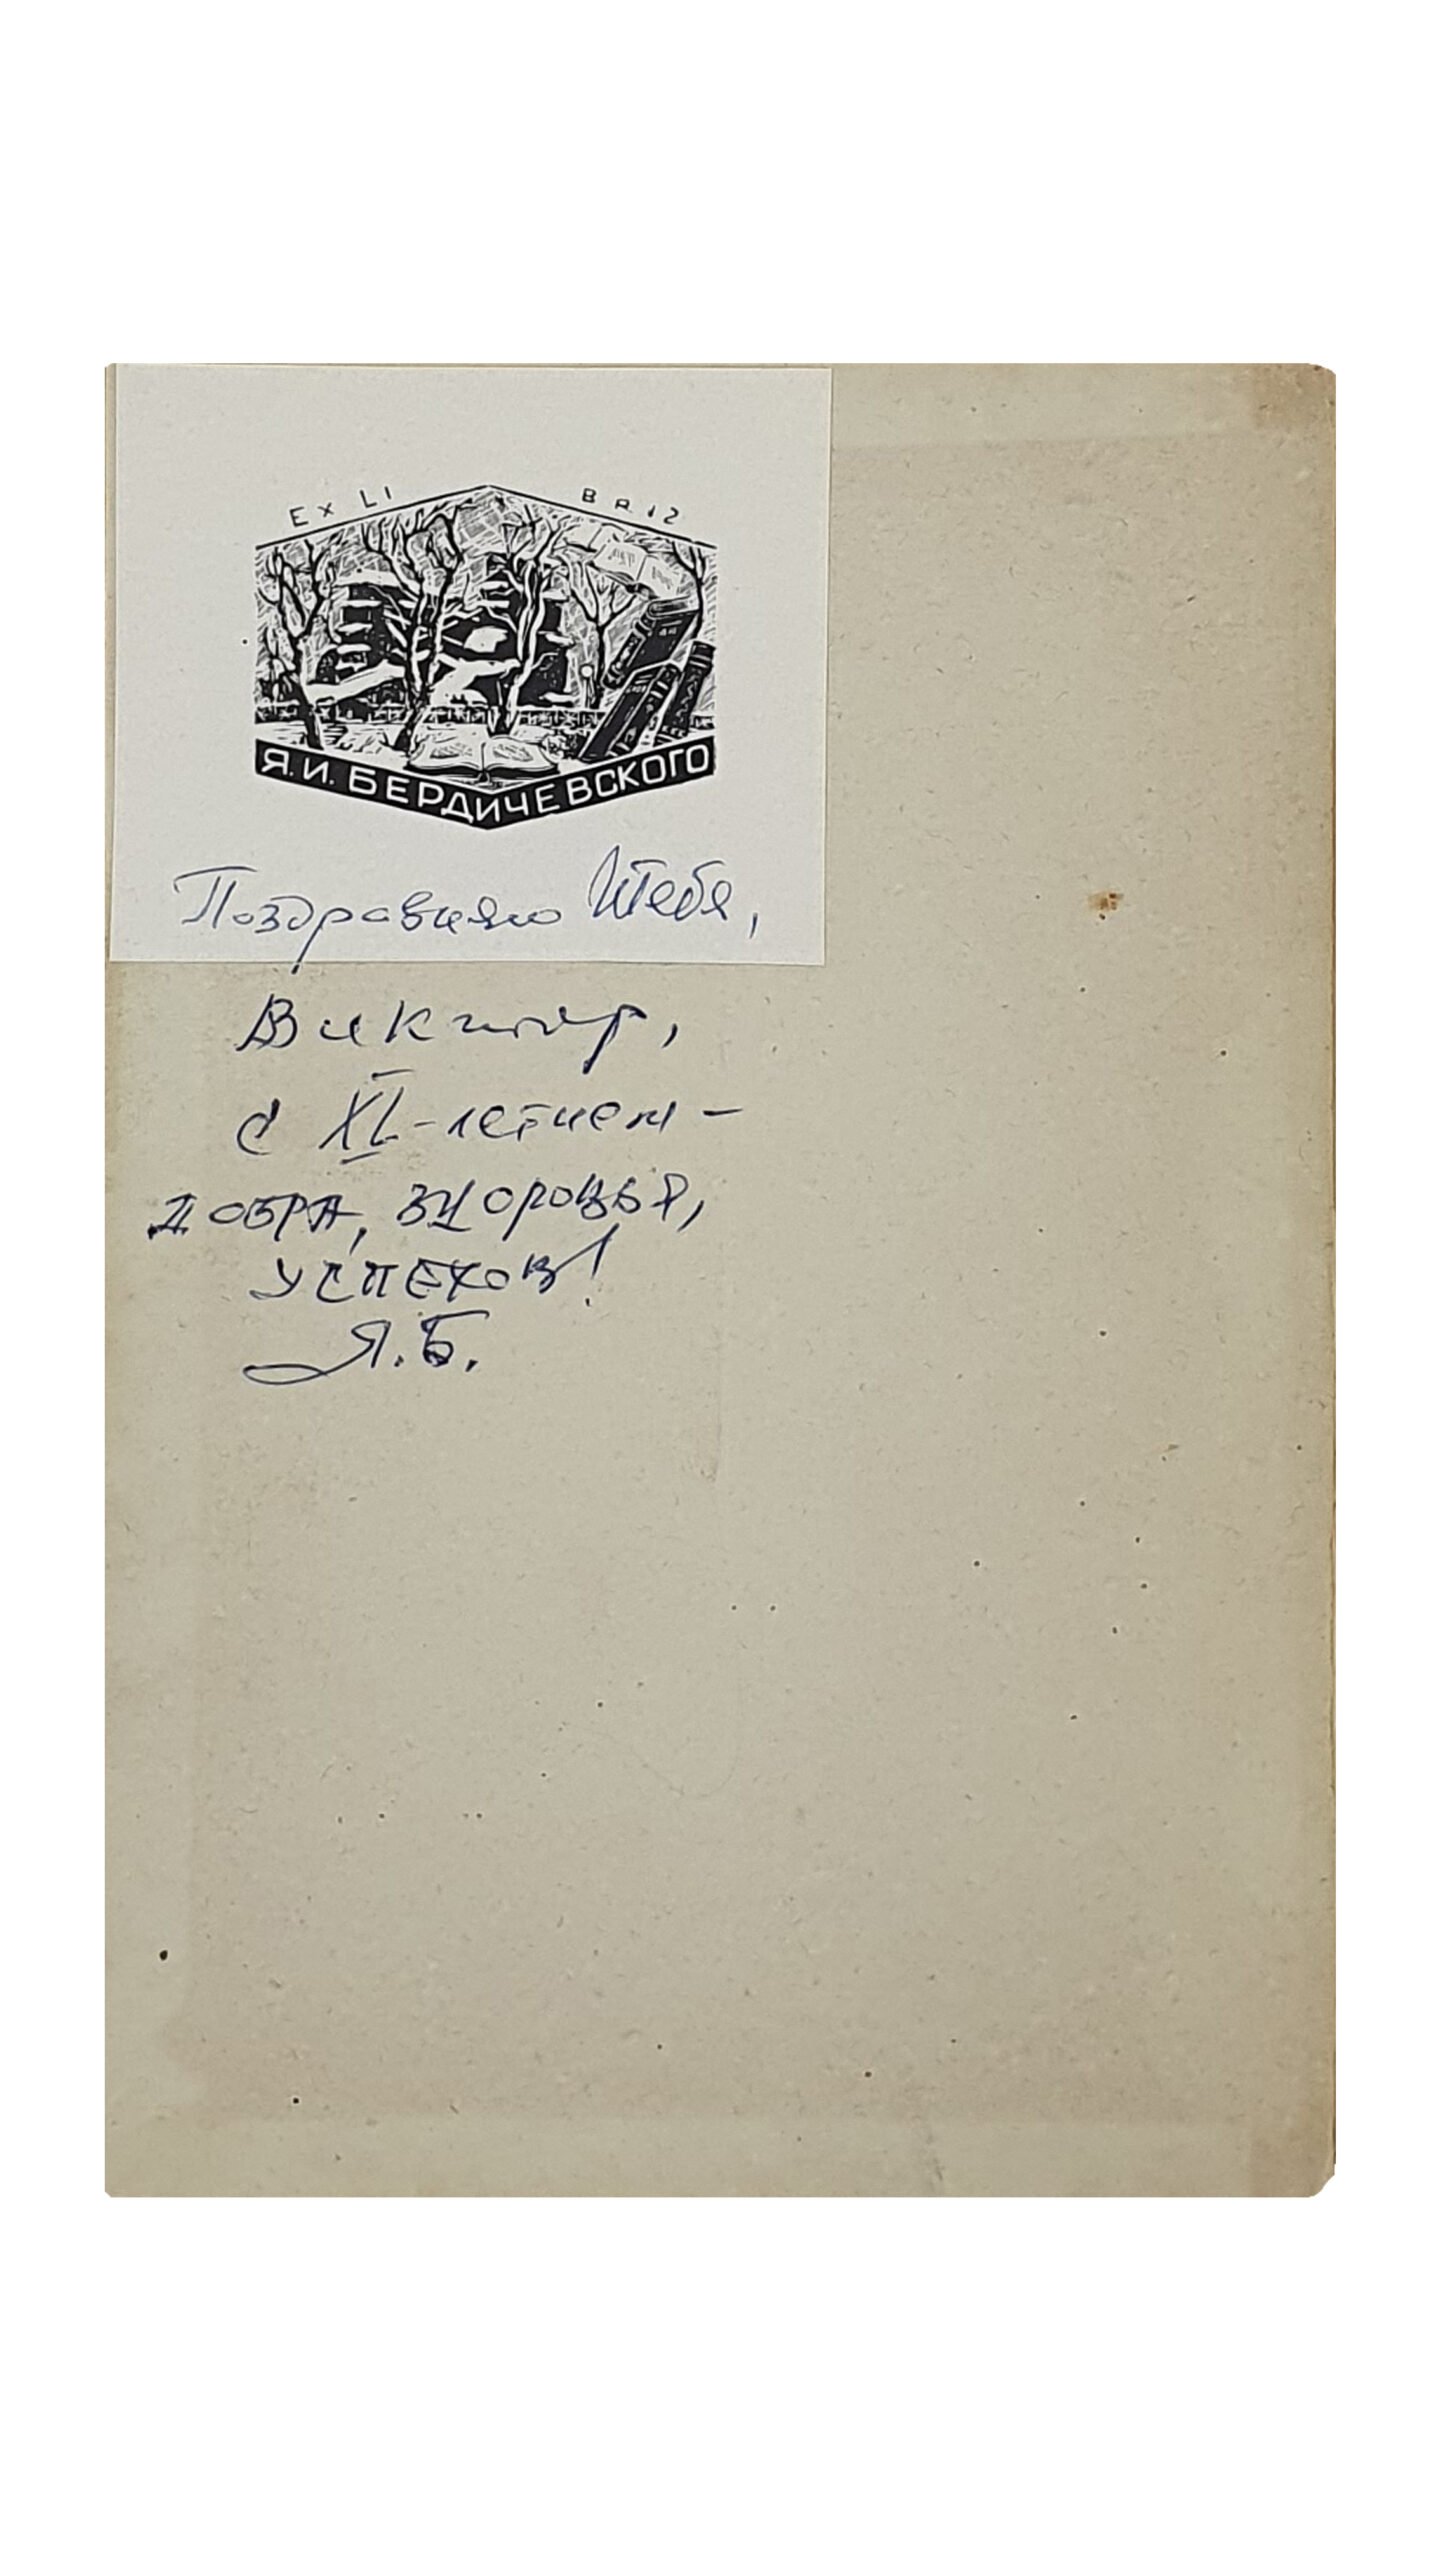 Ex LI BRIS
Я.И. БЕРДИЧЕВСКОГО
Поздравляю Тебя,
Виктор,
с XL-летием –
ДОБРА, ЗДОРОВЬЯ,
УСПЕХОВ!
Я.Б.